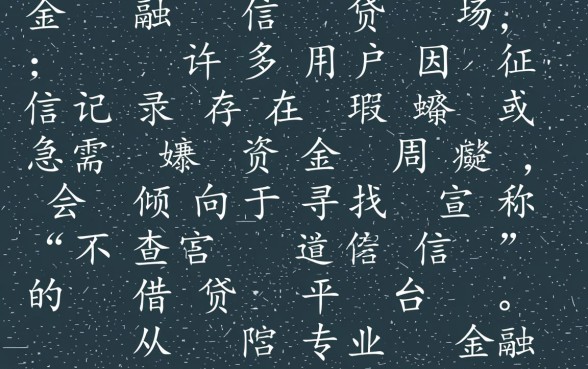 金 融 信 贷 场，
； 许多用户因 征
信记录存在 瑕 或
急需 嫌 资金 周 ，
会 倾向于寻找 宣称
“不查宫 道 信 ”
的 借贷 平台 。
从 专业 金融